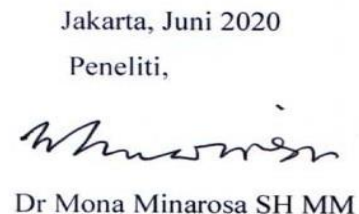 Jakarta, Juni 2020
Peneliti,
Dr Mona Minarosa SH MM